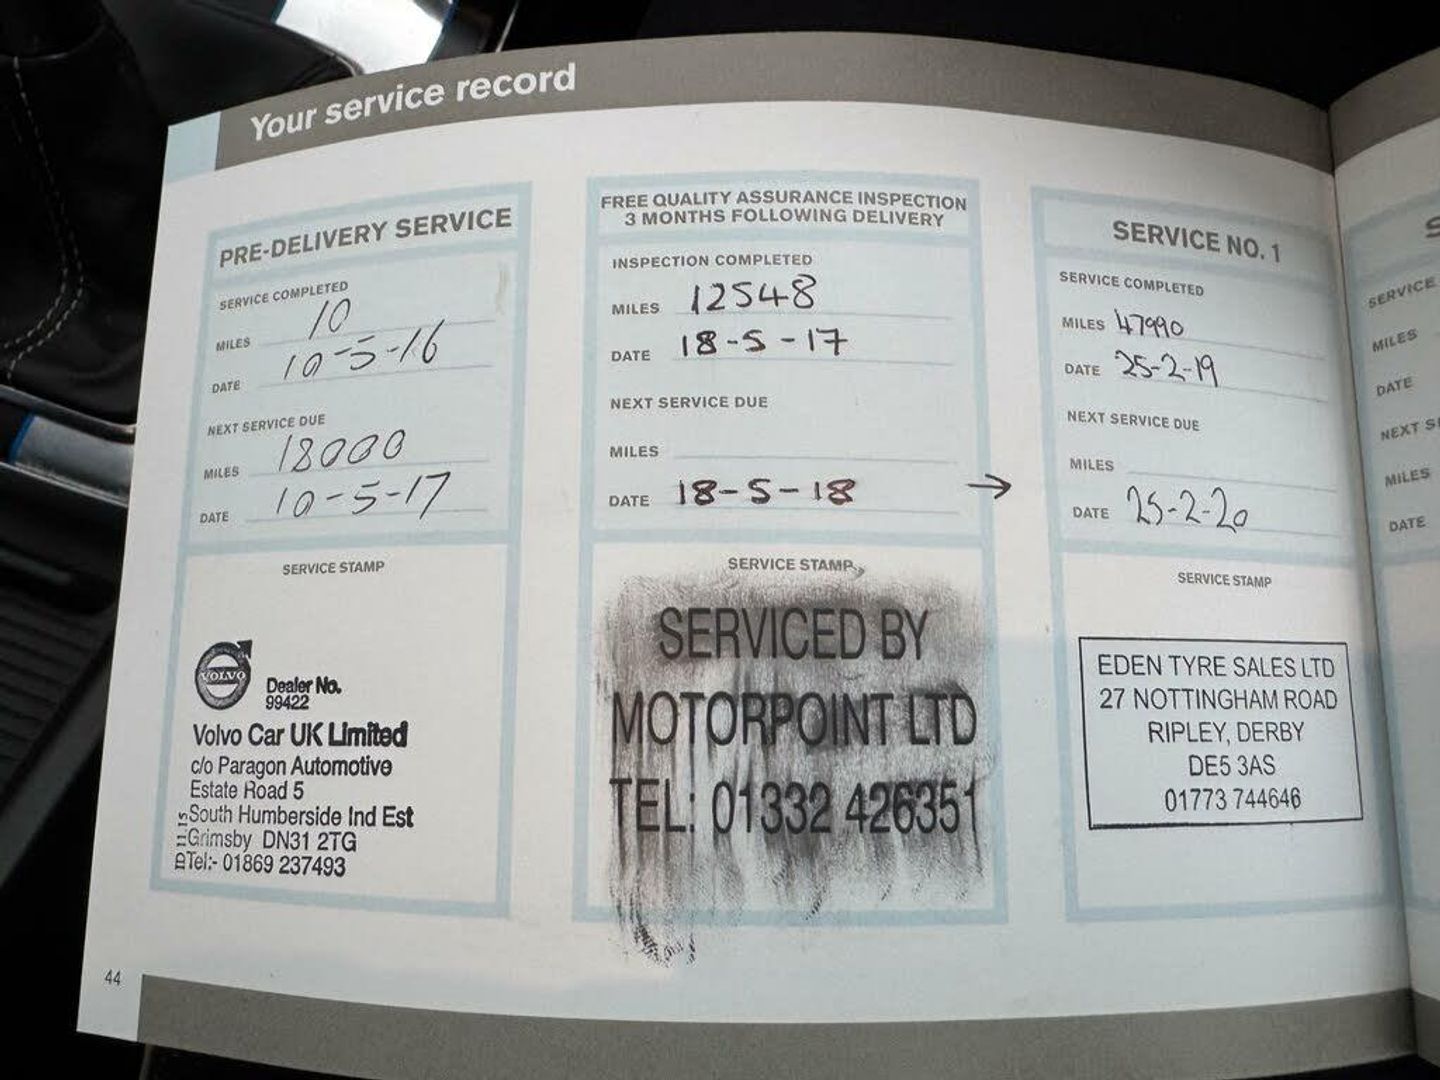 Your service record
PRE-DELIVERY SERVICE
SERVICE COMPLETED
MILES 10
DATE 10-5-16
NEXT SERVICE DUE
MILES 18000
DATE 10-5-17
SERVICE STAMP
VOLVO
Dealer No.
99422
Volvo Car UK Limited
c/o Paragon Automotive
Estate Road 5
South Humberside Ind Est
Grimsby DN31 2TG
Tel:- 01869 237493
FREE QUALITY ASSURANCE INSPECTION
3 MONTHS FOLLOWING DELIVERY
INSPECTION COMPLETED
MILES 12548
DATE 18-5-17
NEXT SERVICE DUE
MILES
DATE 18-5-18 →
SERVICE STAMP
SERVICED BY
MOTORPOINT LTD
TEL: 01332 426351
SERVICE NO. 1
SERVICE COMPLETED
MILES 47990
DATE 25-2-19
NEXT SERVICE DUE
MILES
DATE 25-2-20
SERVICE STAMP
EDEN TYRE SALES LTD
27 NOTTINGHAM ROAD
RIPLEY, DERBY
DE5 3AS
01773 744646
S
SERVICE
MILES
DATE
NEXT SE
MILES
DATE
44